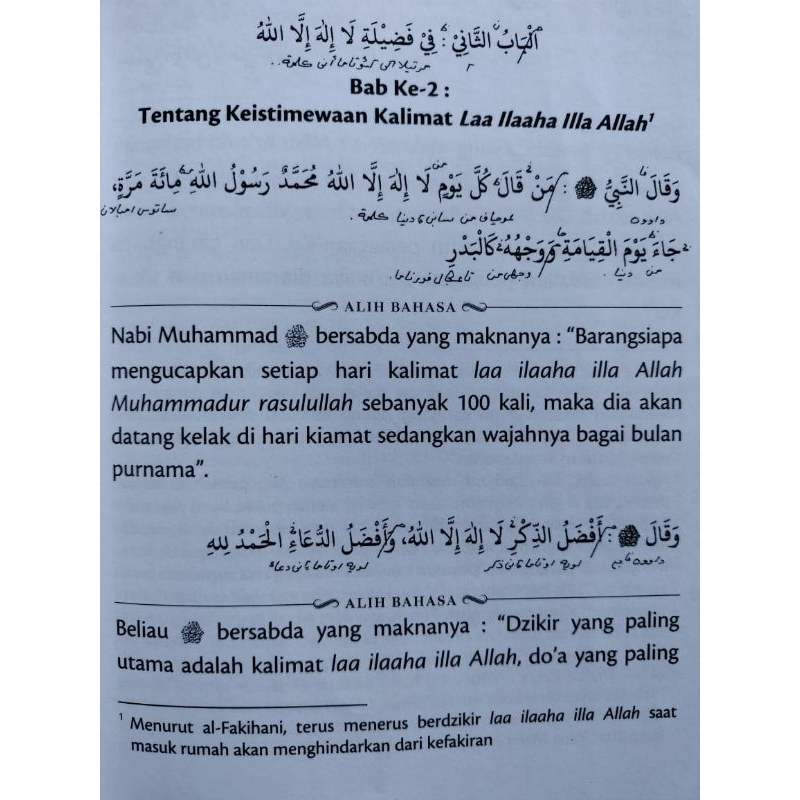 اَلْبَابُ الثَّانِيْ : فِيْ فَضِيْلَةِ لَا إِلٰهَ إِلَّا اللهُ
Bab Ke-2 :
Tentang Keistimewaan Kalimat Laa Ilaaha Illa Allah¹
وَقَالَ النَّبِيُّ ﷺ : مَنْ قَالَ كُلَّ يَوْمٍ لَا إِلٰهَ إِلَّا اللهُ مُحَمَّدٌ رَسُوْلُ اللهِ مِائَةَ مَرَّةٍ،
جَاءَ يَوْمَ الْقِيَامَةِ وَوَجْهُهُ كَالْبَدْرِ
ALIH BAHASA
Nabi Muhammad ﷺ bersabda yang maknanya : “Barangsiapa
mengucapkan setiap hari kalimat laa ilaaha illa Allah
Muhammadur rasulullah sebanyak 100 kali, maka dia akan
datang kelak di hari kiamat sedangkan wajahnya bagai bulan
purnama”.
وَقَالَ ﷺ : أَفْضَلُ الذِّكْرِ لَا إِلٰهَ إِلَّا اللهُ، وَأَفْضَلُ الدُّعَاءِ الْحَمْدُ لِلهِ
ALIH BAHASA
Beliau ﷺ bersabda yang maknanya : “Dzikir yang paling
utama adalah kalimat laa ilaaha illa Allah, do’a yang paling
¹ Menurut al-Fakihani, terus menerus berdzikir laa ilaaha illa Allah saat
masuk rumah akan menghindarkan dari kefakiran